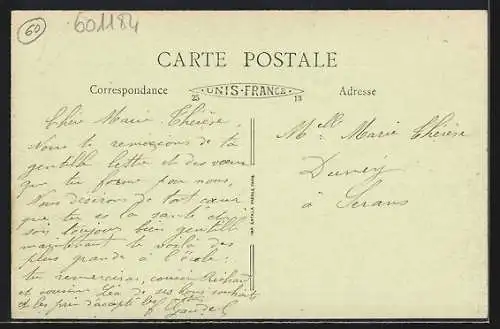 60
601184
CARTE POSTALE
Correspondance
25 UNIS-FRANCE 13
Adresse
Chère Marie Thérèse
Nous te remercions de ta
gentille lettre et des vœux
que tu forme pour nous,
Nous désirons de tout cœur
que tu es la santé et
sois toujours bien gentille
maintenant te voilà des
plus grande à l'école.
tu remercieras, cousin Richard
et cousine Léa de ses bons souhaits
et les prie d'accepté
Melle Marie Thérèse
à Serans